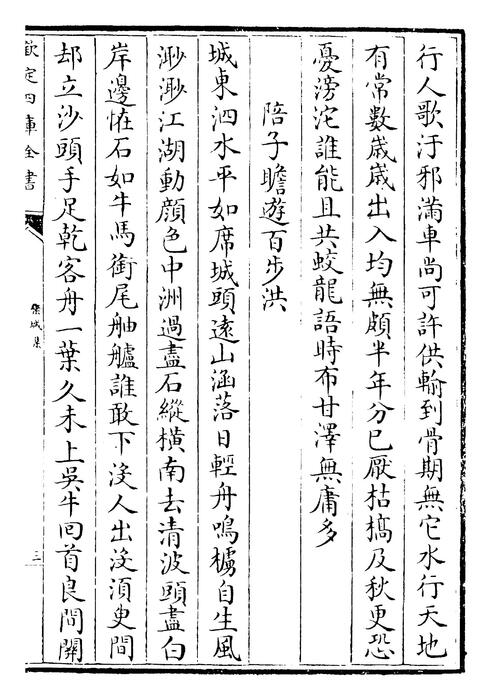 行人歌汙邪滿車尚可許供輸到骨期無它水行天地
有常數歲歲出入均無頗半年分已厭枯槁及秋更恐
憂滂沱誰能且共蛟龍語時布甘澤無庸多
陪子瞻遊百步洪
城東泗水平如席城頭遠山涵落日輕舟鳴櫓自生風
渺渺江湖動顏色中洲過盡石縱橫南去清波頭盡白
岸邊怪石如牛馬銜尾舳艫誰敢下没人出没須臾間
却立沙頭手足乾客舟一葉久未上吳牛回首良間關
欽定四庫全書
欒城集
三